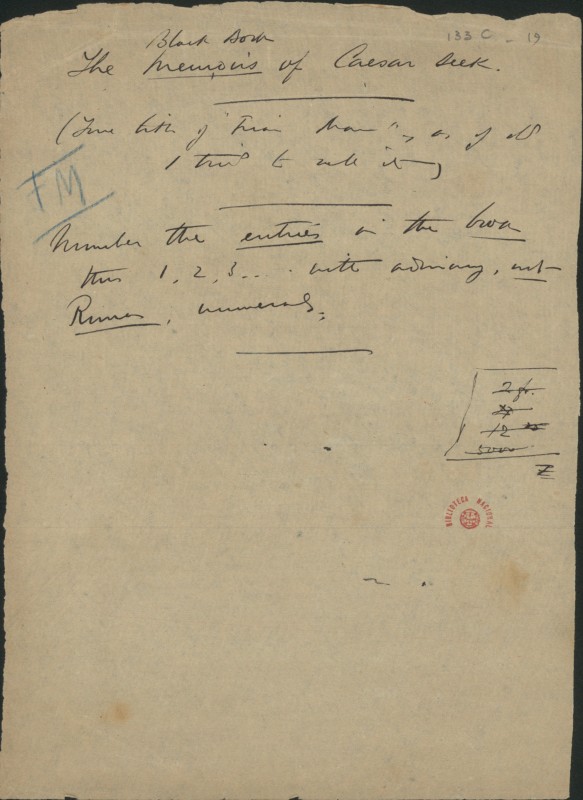 133 C - 19
Black Book
The Memoirs of Caesar Seek.
(True title of "
I tried to
FM
Number the entries in the book
thus 1, 2, 3 .... with ordinary, not
Roman, numerals.
2 gr.
27
12
5000
BIBLIOTECA NACIONAL